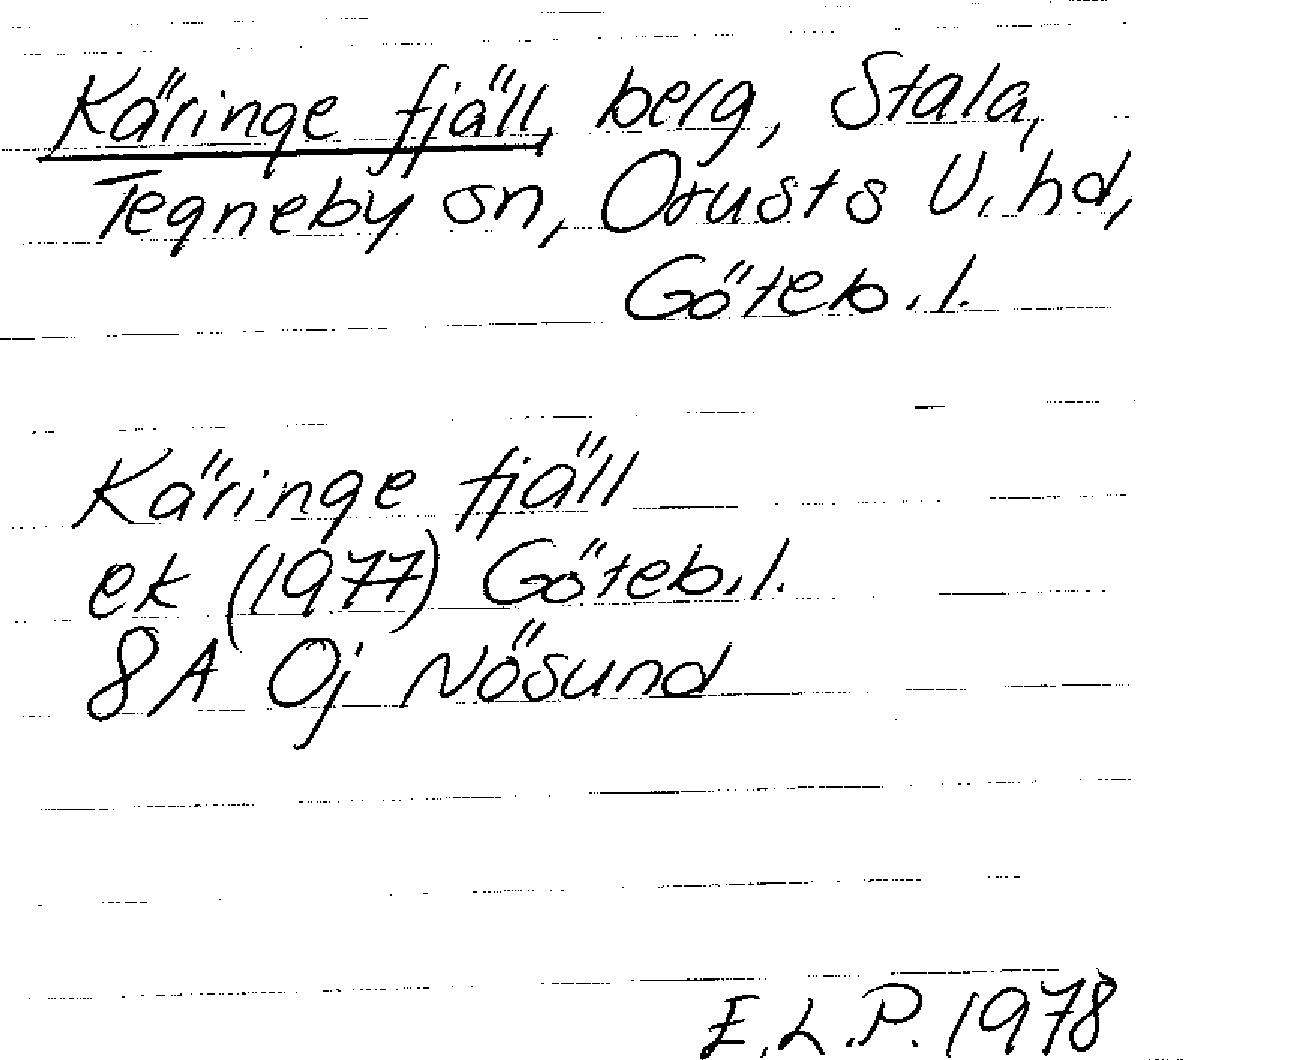 Käringe fjäll, berg, Stala,
Tegneby sn, Orusts V. hd,
Göteb. l.
Käringe fjäll
ek (1977) Göteb. l.
8A 0j Nösund
E.L.P. 1978